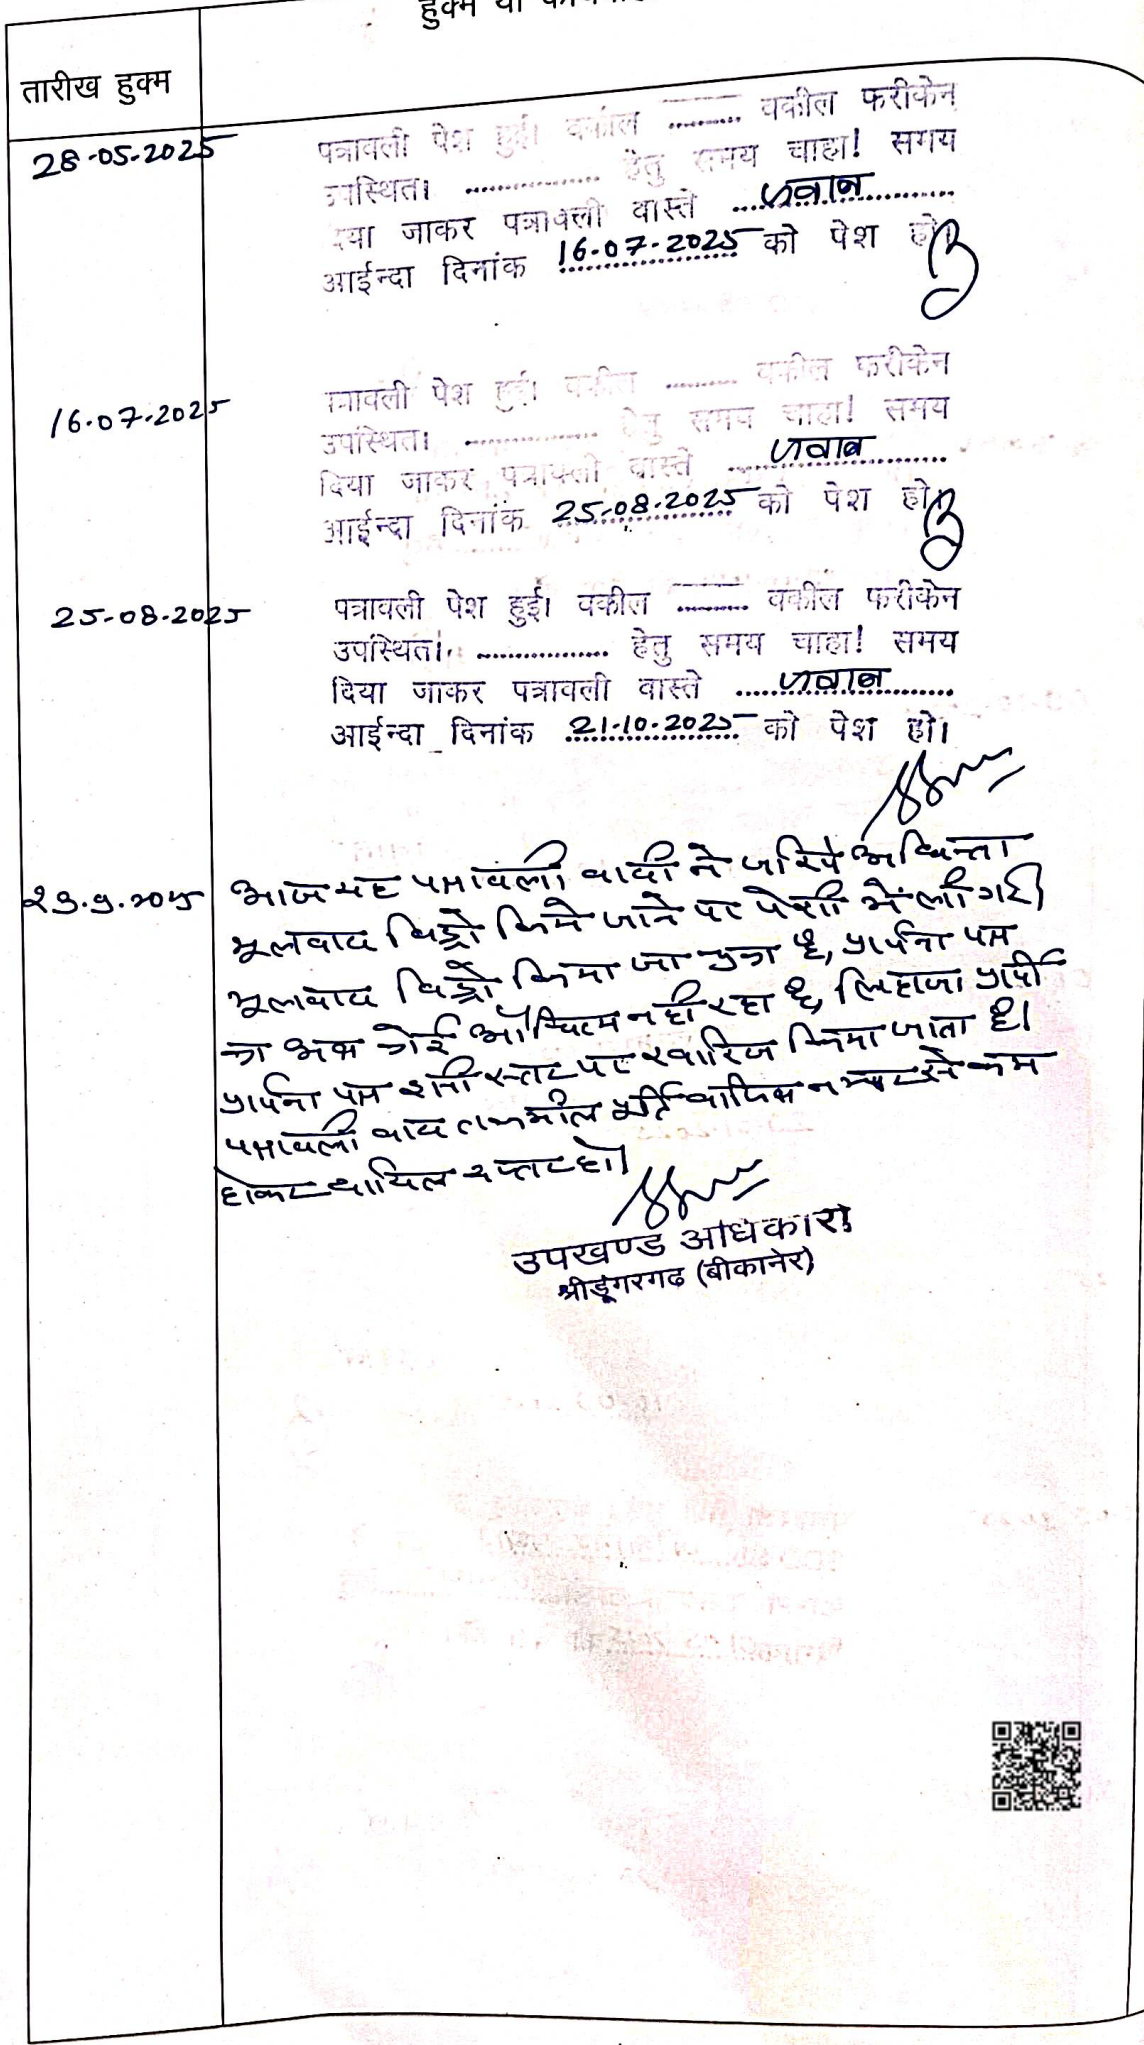 हुक्म या
तारीख हुक्म
28-05-2025
पत्रावली पेश हुई। वकील ......... वकील फरीकेन
उपस्थित। ................ हेतु समय चाहा! समय
दिया जाकर पत्रावली वास्ते ....जवाब............
आईन्दा दिनांक 16-07-2025 को पेश हो।
16-07-2025
पत्रावली पेश हुई। वकील ......... वकील फरीकेन
उपस्थित। ................ हेतु समय चाहा! समय
दिया जाकर पत्रावली वास्ते ....जवाब............
आईन्दा दिनांक 25-08-2025 को पेश हो।
25-08-2025
पत्रावली पेश हुई। वकील ......... वकील फरीकेन
उपस्थित। ................ हेतु समय चाहा! समय
दिया जाकर पत्रावली वास्ते ....जवाब............
आईन्दा दिनांक 21-10-2025 को पेश हो।
आज यह पत्रावली वादी ने जरिये अधिवक्ता
मूलवाद विड्रो किये जाने पर पेशी में ली गई।
मूलवाद विड्रो किया जा चुका है, प्रार्थना पत्र
का अब कोई औचित्य नहीं रहा है, लिहाजा प्रार्थी
प्रार्थना पत्र इसी स्तर पर खारिज किया जाता है।
पत्रावली बाद तकमील नम्बर से कम
होकर दाखिल दफ्तर हो।
उपखण्ड अधिकारी
श्रीडूंगरगढ (बीकानेर)